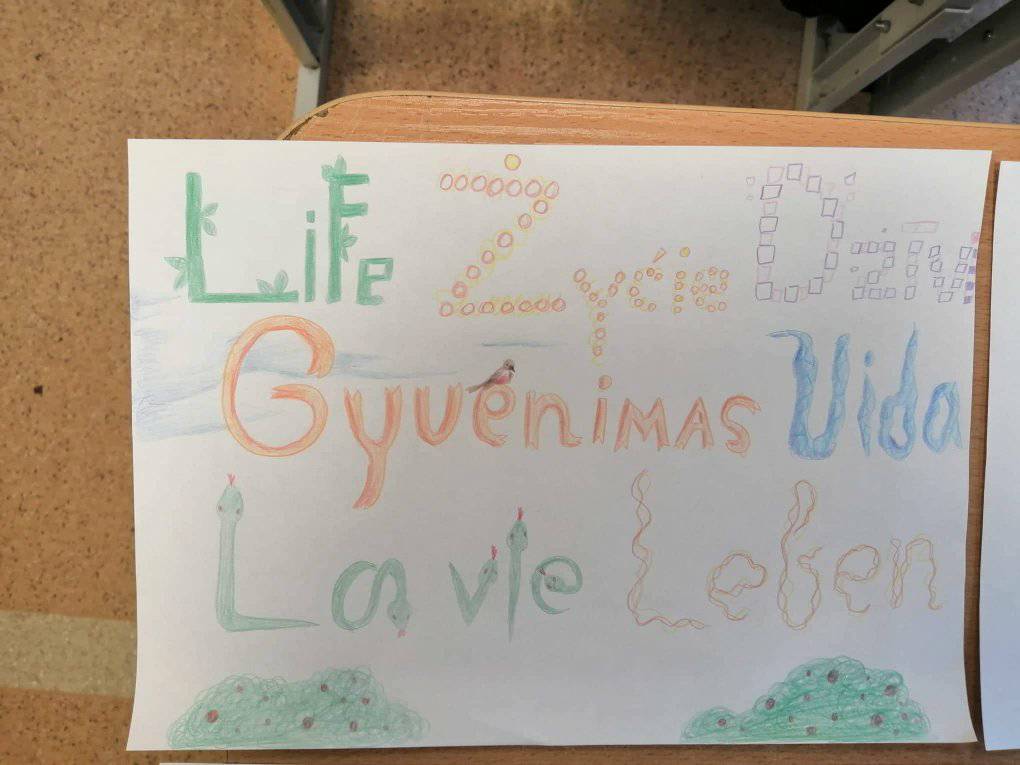 LiFe Życie
GyveniMAS Vida
La vie Leben